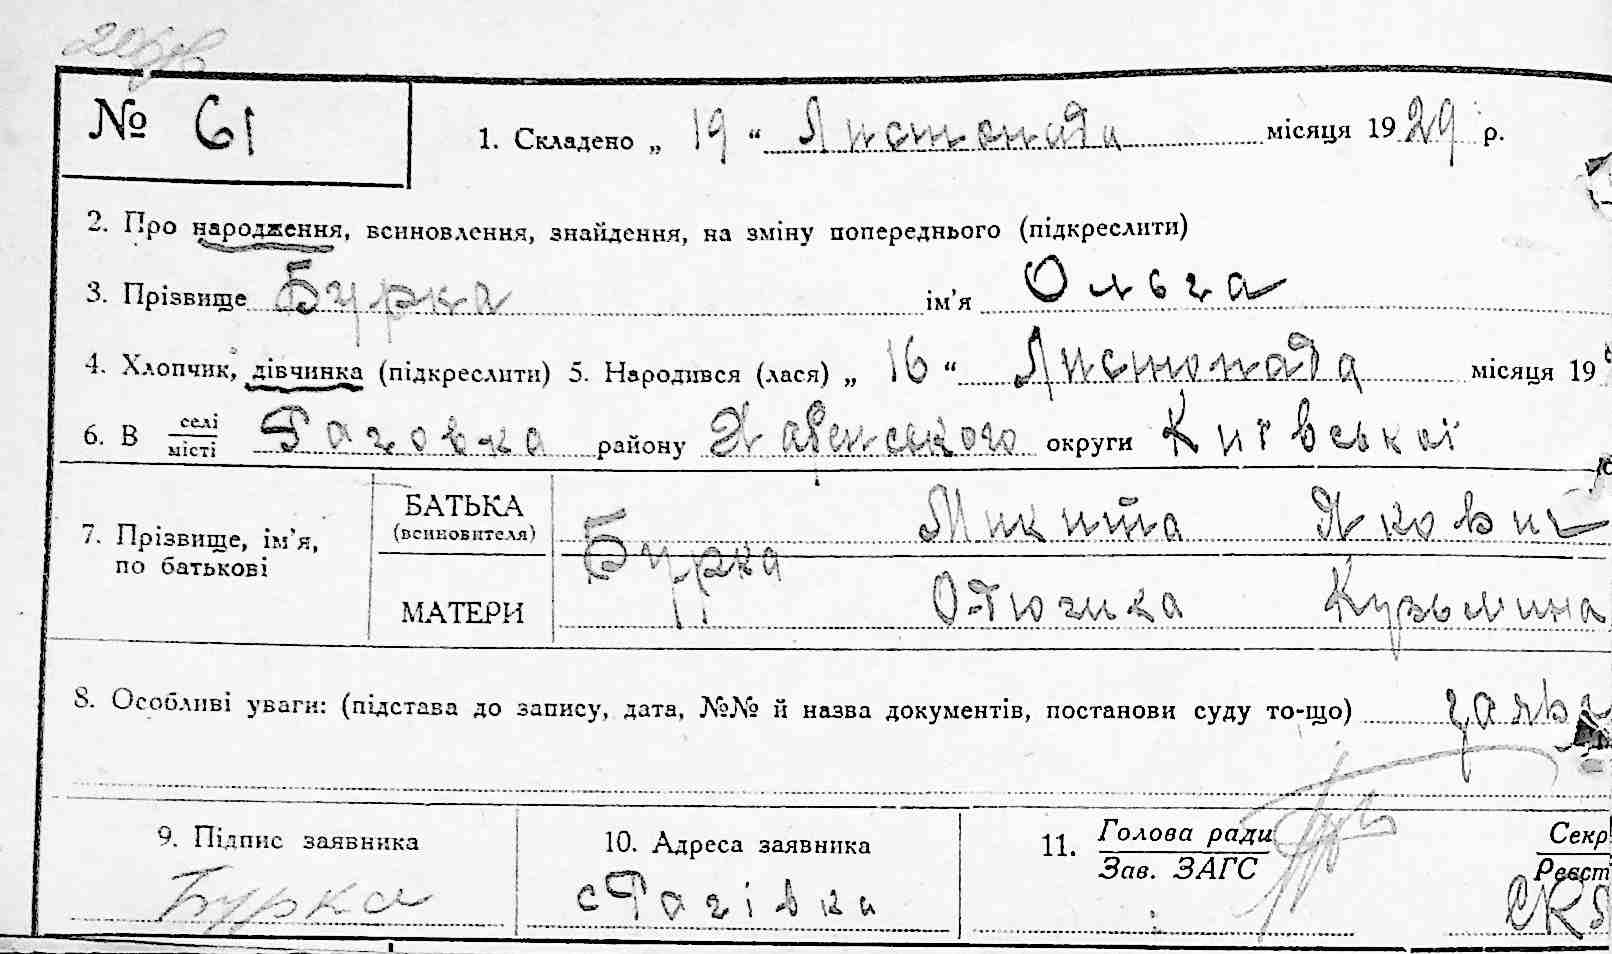 № 61
1. Складено „ 19 “ Листопада місяця 1929 р.
2. Про народження, всиновлення, знайдення, на зміну попереднього (підкреслити)
3. Прізвище Бурка ім’я Ольга
4. Хлопчик, дівчинка (підкреслити) 5. Народився (лася) „ 16 “ Листопада місяця 19
6. В селі місті Раговка району Хабенського округи Київської
7. Прізвище, ім’я, по батькові
БАТЬКА (всиновителя) Бурка Микита Якович
МАТЕРИ Кузьмина
8. Особливі уваги: (підстава до запису, дата, №№ й назва документів, постанови суду то-що) заява
9. Підпис заявника
Бурка
10. Адреса заявника
с Рагівка
11. Голова ради
Зав. ЗАГС
Секр
Реєст